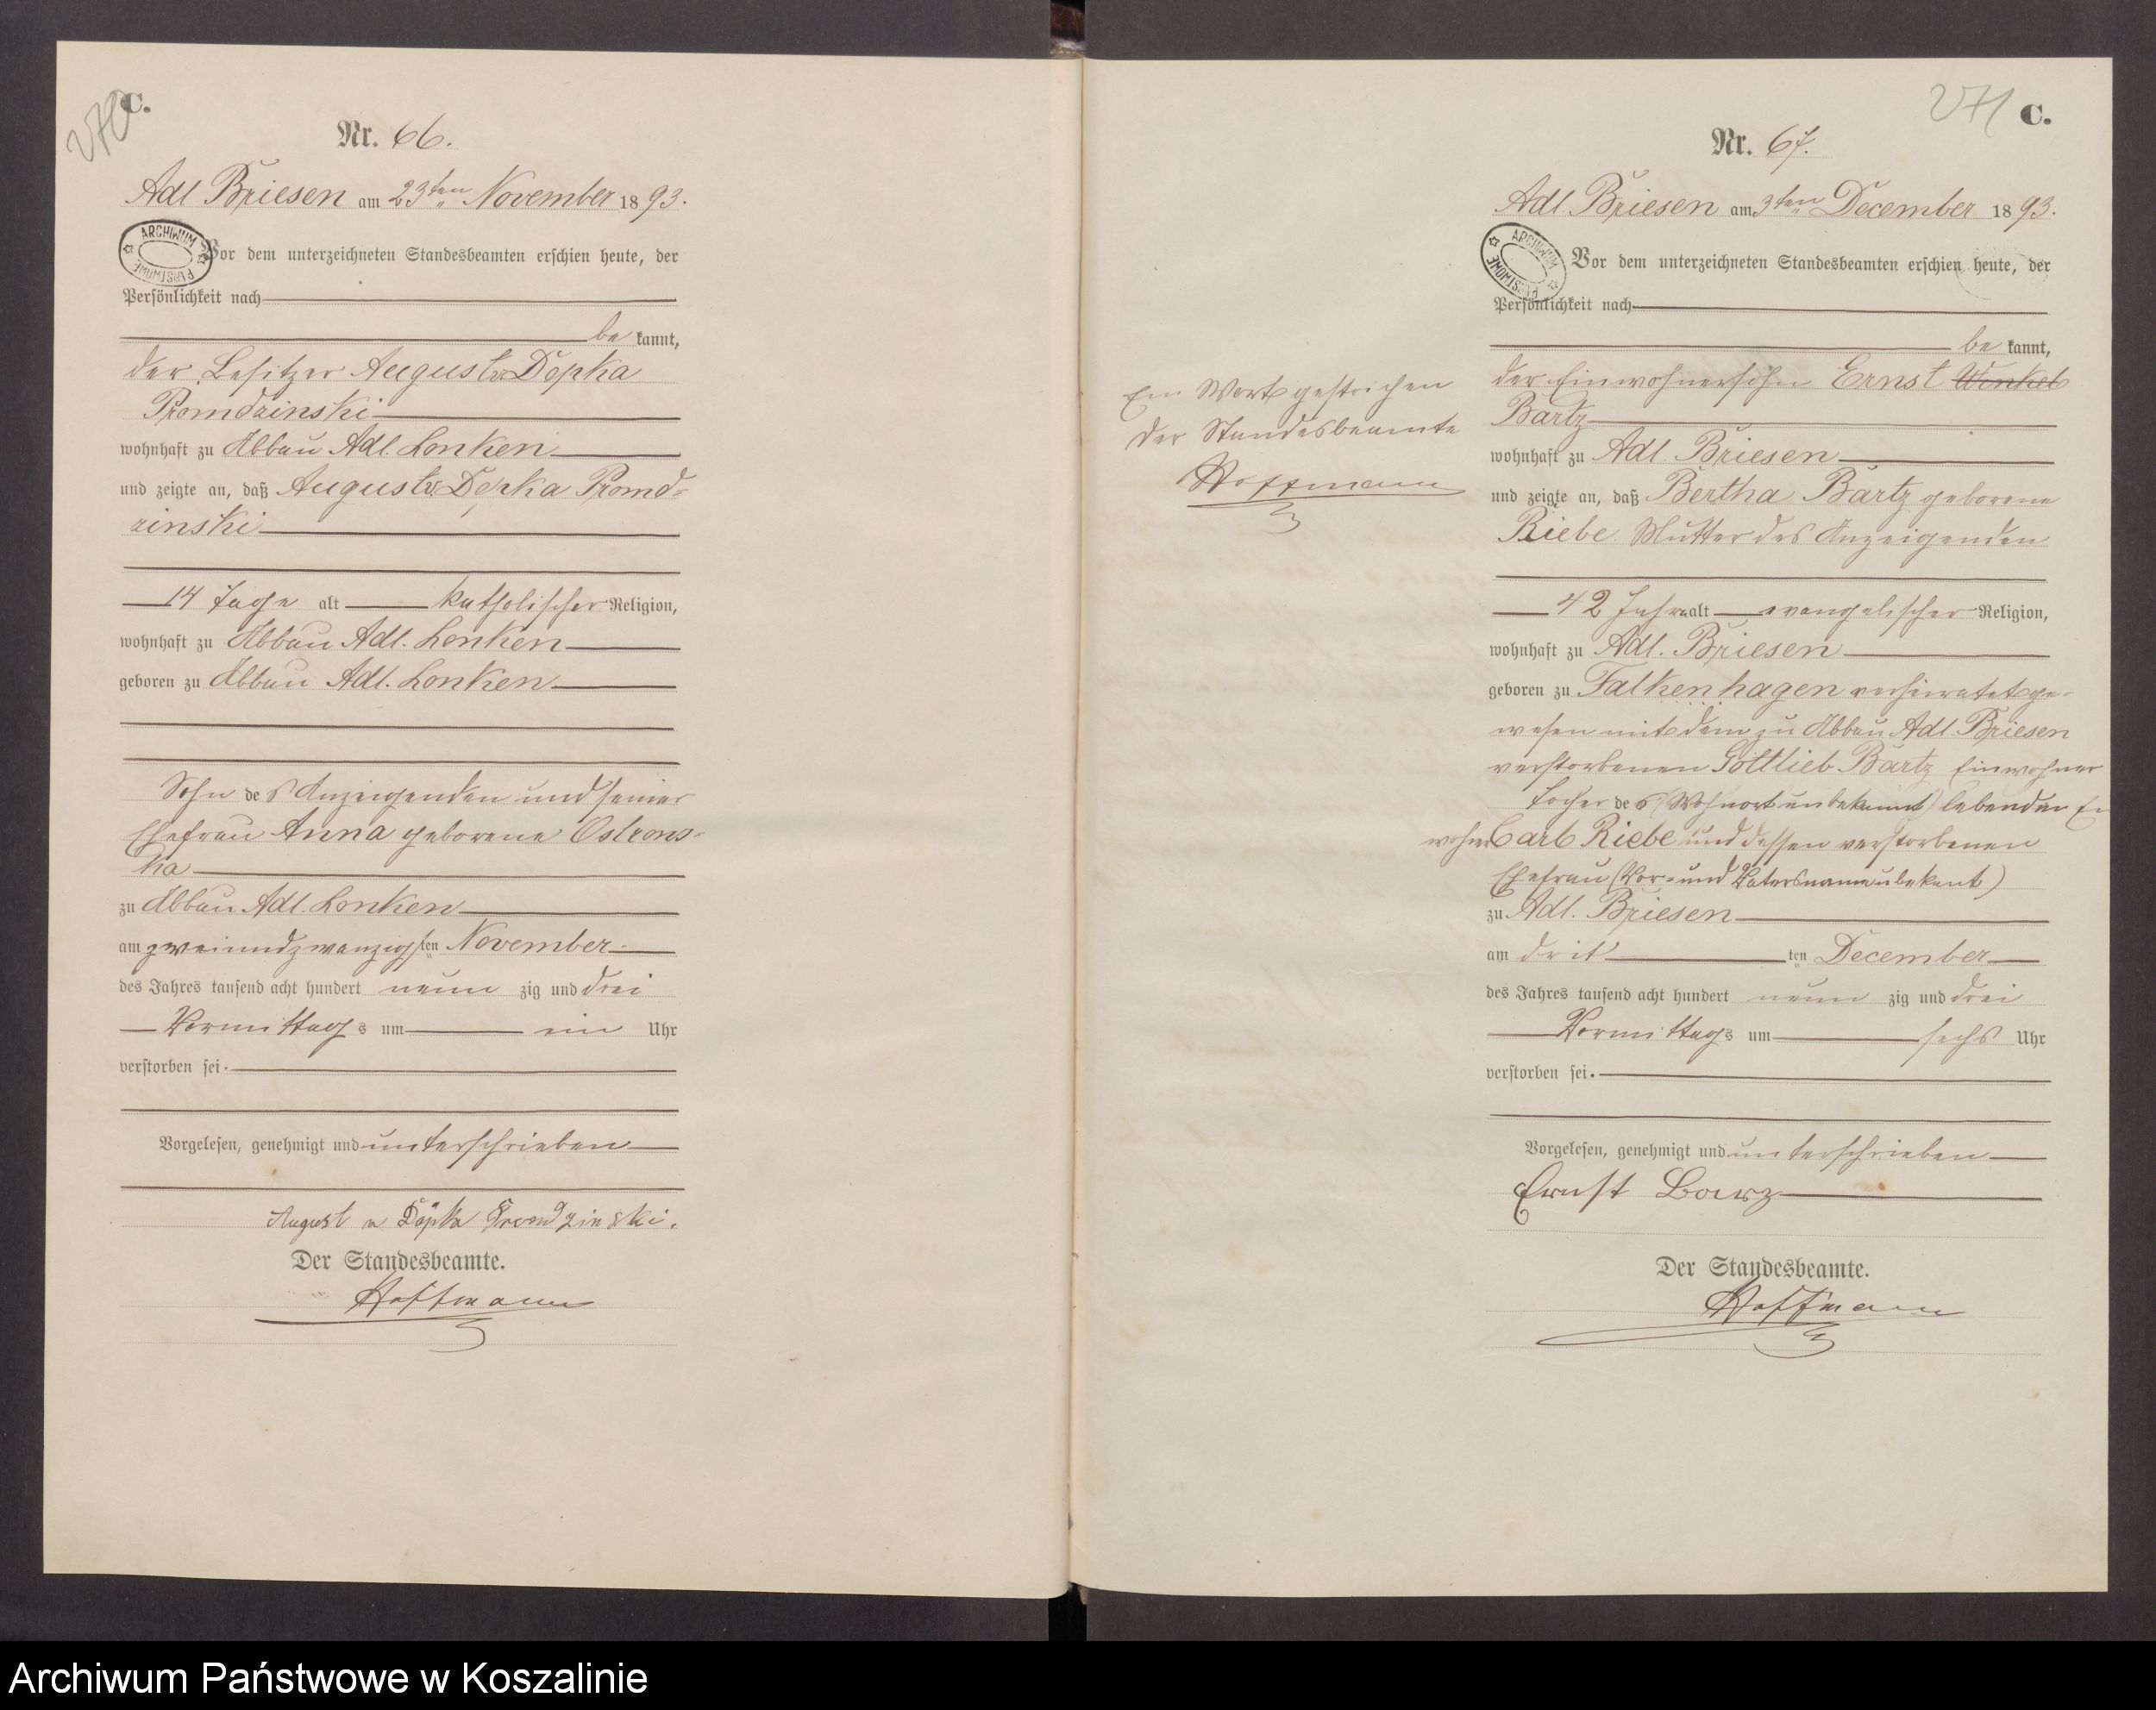 270 C.
Nr. 66.
Adl Briesen am 23ten November 1893.
ARCHIWUM PAŃSTWOWE
Vor dem unterzeichneten Standesbeamten erschien heute, der
Persönlichkeit nach
be kannt,
der Besitzer August v Depka
Promdzinski
wohnhaft zu Abbau Adl. Lonken
und zeigte an, daß August v. Depka Promd-
zinski
14 Tage alt katholischer Religion,
wohnhaft zu Abbau Adl. Lonken
geboren zu Abbau Adl. Lonken
Sohn des Anzeigenden und seiner
Ehefrau Anna geborene Ostrows-
ka
zu Abbau Adl. Lonken
am zweiundzwanzigsten November
des Jahres tausend acht hundert neun zig und drei
Vormittags um ein Uhr
verstorben sei.
Vorgelesen, genehmigt und unterschrieben
August v Depka Promdzinski.
Der Standesbeamte.
Hoffmann
271 C.
Nr. 67.
Adl. Briesen am 3ten December 1893.
ARCHIWUM PAŃSTWOWE
Vor dem unterzeichneten Standesbeamten erschien heute, der
Persönlichkeit nach
be kannt,
der Einwohnersohn Ernst Winkel
Bartz
wohnhaft zu Adl. Briesen
und zeigte an, daß Bertha Bartz geborene
Riebe Mutter des Anzeigenden
42 Jahre alt evangelischer Religion,
wohnhaft zu Adl. Briesen
geboren zu Falkenhagen verheiratet ge-
wesen mit dem zu Abbau Adl. Briesen
verstorbenen Gottlieb Bartz Einwohner
Tocher des (Wohnort unbekannt) lebenden Ein
wohner Carl Riebe und dessen verstorbenen
Ehefrau (Vor- und Vatersname ubekant)
zu Adl. Briesen
am drit ten December
des Jahres tausend acht hundert neun zig und drei
Vormittags um sechs Uhr
verstorben sei.
Vorgelesen, genehmigt und unterschrieben
Ernst Barz
Der Standesbeamte.
Hoffmann
Ein Wort gestrichen
Der Standesbeamte
Hoffmann
Archiwum Państwowe w Koszalinie